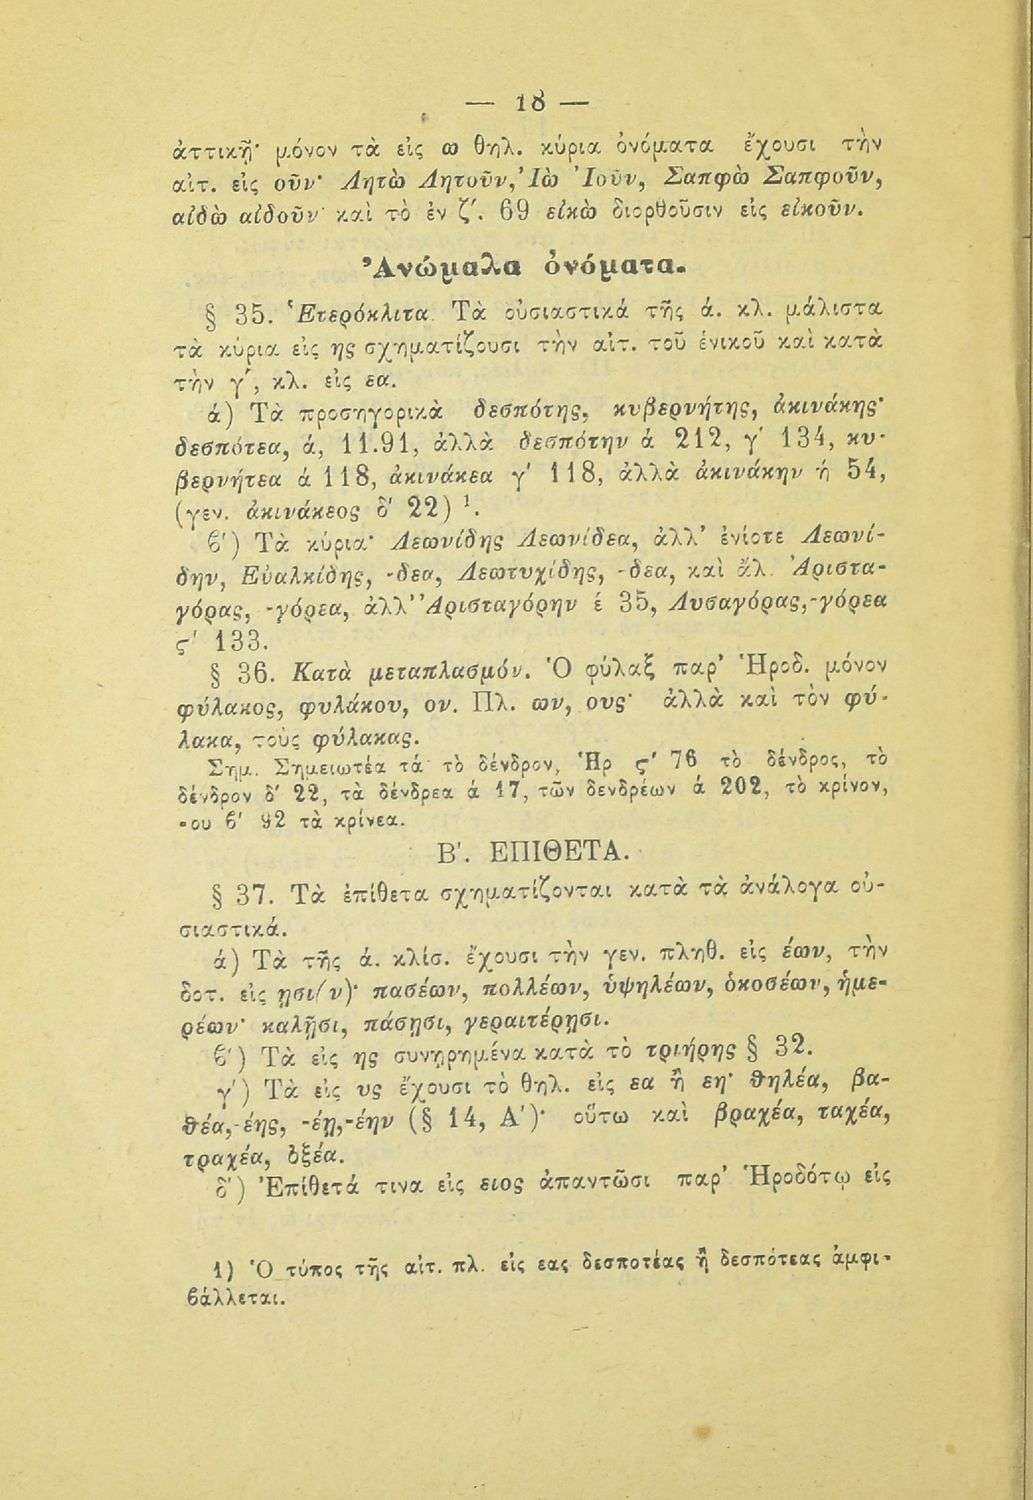 — 18 —
ἀττικῇ· μόνον τὰ εἰς ω θηλ. κύρια ὀνόματα ἔχουσι τὴν
αἰτ. εἰς οῦν· Λητὼ Λητοῦν, Ἰὼ Ἰοῦν, Σαπφὼ Σαπφοῦν,
αἰδὼ αἰδοῦν· καὶ τὸ ἐν ζ΄. 69 εἰκὼ διορθοῦσιν εἰς εἰκοῦν.
Ἀνώμαλα ὀνόματα.
§ 35. Ἑτερόκλιτα. Τὰ οὐσιαστικά τῆς ά. κλ. μάλιστα
τὰ κύρια εἰς ης σχηματίζουσι τὴν αἰτ. τοῦ ἑνικοῦ καὶ κατὰ
τὴν γ΄, κλ. εἰς εα.
ά) Τὰ προσηγορικὰ δεσπότης, κυβερνήτης, ἀκινάκης·
δεσπότεα, ά, 11.91, ἀλλὰ δεσπότην ά 212, γ΄ 134, κυ-
βερνήτεα ά 118, ἀκινάκεα γ΄ 118, ἀλλὰ ἀκινάκην ή 54,
(γεν. ἀκινάκεος δ΄ 22) ¹.
β΄) Τὰ κύρια· Λεωνίδης Λεωνίδεα, ἀλλ' ἐνίοτε Λεωνί-
δην, Εὐαλκίδης, -δεα, Λεωτυχίδης, -δεα, καὶ ἄλ. Ἀριστα-
γόρας, -γόρεα, ἀλλ' Ἀρισταγόρην έ 35, Λυσαγόρας,-γόρεα
ς΄ 133.
§ 36. Κατὰ μεταπλασμόν. Ὁ φύλαξ παρ' Ἡροδ. μόνον
φύλακος, φυλάκου, ον. Πλ. ων, ους· ἀλλὰ καὶ τὸν φύ-
λακα, τοὺς φύλακας.
Σημ. Σημειωτέα τά τὸ δένδρον, Ἡρ ς΄ 76 τὸ δένδρος, τὸ
δένδρον δ΄ 22, τὰ δένδρεα ά 17, τῶν δενδρέων ά 202, τὸ κρίνον,
-ου β΄ 92 τὰ κρίνεα.
Β΄. ΕΠΙΘΕΤΑ.
§ 37. Τὰ ἐπίθετα σχηματίζονται κατὰ τὰ ἀνάλογα οὐ-
σιαστικά.
ά) Τὰ τῆς ά. κλίσ. ἔχουσι τὴν γεν. πληθ. εἰς έων, τὴν
δοτ. εἰς ῃσι(ν)· πασέων, πολλέων, ὑψηλέων, ὁκοσέων, ἡμε-
ρέων· καλῇσι, πάσῃσι, γεραιτέρῃσι.
β΄) Τὰ εἰς ης συνῃρημένα κατὰ τὸ τριήρης § 32.
γ΄) Τὰ εἰς υς ἔχουσι τὸ θηλ. εἰς εα ἢ εη· θηλέα, βα-
θέα,-έης, -έῃ,-έην (§ 14, Α΄)· οὕτω καὶ βραχέα, ταχέα,
τραχέα, ὀξέα.
δ΄) Ἐπίθετά τινα εἰς ειος ἀπαντῶσι παρ' Ἡροδότῳ εἰς
1) Ὁ τύπος τῆς αἰτ. πλ. εἰς εας δεσποτέας ἢ δεσπότεας ἀμφι-
βάλλεται.